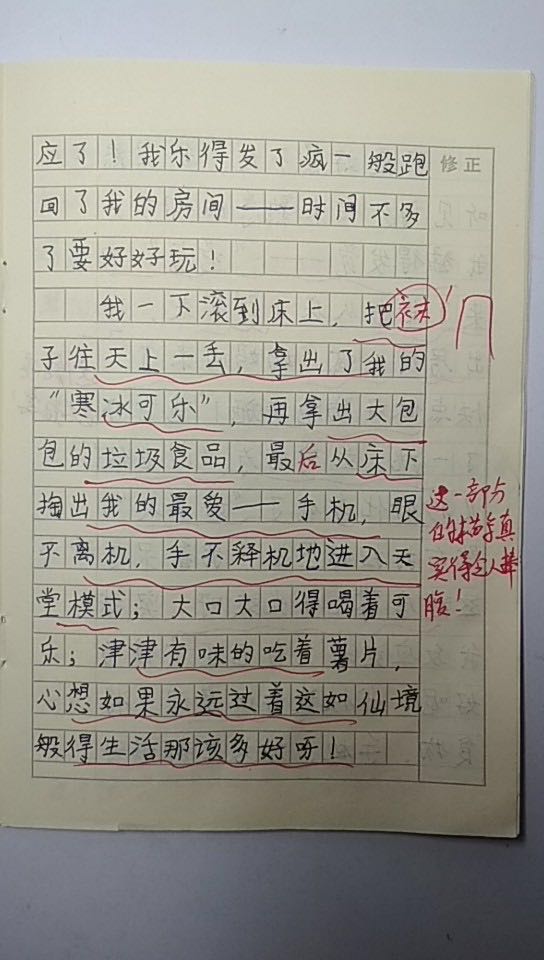 应了！我乐得发了疯一般跑
回了我的房间——时间不多
了要好好玩！
我一下滚到床上，把袜
子往天上一丢，拿出了我的
“寒冰可乐”，再拿出大包
包的垃圾食品，最后从床下
掏出我的最爱——手机，眼
不离机，手不释机地进入天
堂模式；大口大口得喝着可
乐；津津有味的吃着薯片，
心想如果永远过着这如仙境
般得生活那该多好呀！
修正
这一部分
的描写真
实得令人捧
腹！